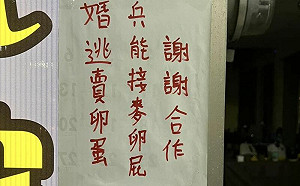 謝謝合作
兵能接麥卵屁
婚逃賣卵蛋